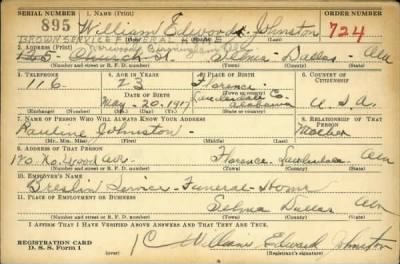 SERIAL NUMBER 1. NAME (Print) ORDER NUMBER
895 William Edward Johnston 724
BROWN SERVICE FUNERAL HOME
Norwood Birmingham Ala
2. ADDRESS (Print)
Church St. Selma - Dallas - Ala
(Number and street or R. F. D. number) (Town) (County) (State)
3. TELEPHONE 4. AGE IN YEARS 5. PLACE OF BIRTH 6. COUNTRY OF CITIZENSHIP
116 23 Florence
DATE OF BIRTH Lauderdale Co.
May - 20 - 1917 Alabama U. S. A.
(Exchange) (Number) (Mo.) (Day) (Yr.) (State or country)
7. NAME OF PERSON WHO WILL ALWAYS KNOW YOUR ADDRESS 8. RELATIONSHIP OF THAT PERSON
Pauline Johnston Mother
(Mr., Mrs., Miss) (First) (Middle) (Last)
9. ADDRESS OF THAT PERSON
Wood Ave. Florence, Lauderdale Ala
(Number and street or R. F. D. number) (Town) (County) (State)
10. EMPLOYER'S NAME
Service - Funeral - Home
11. PLACE OF EMPLOYMENT OR BUSINESS
Selma Dallas Ala
(Number and street or R. F. D. number) (Town) (County) (State)
I AFFIRM THAT I HAVE VERIFIED ABOVE ANSWERS AND THAT THEY ARE TRUE.
REGISTRATION CARD
D. S. S. Form 1 William Edward Johnston
(Registrant's signature)